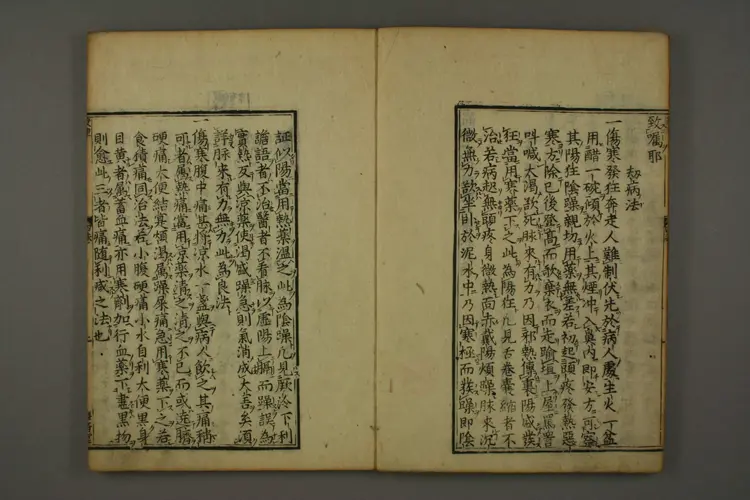 致嘱耶
劫病法
一傷寒發狂奔走人難制伏先於病人處生火一盆
用醋一碗傾於火上其煙冲入鼻內即安方可察
其陽狂陰躁親切用藥無差若初起頭疼發熱惡
寒方除已後登高而歌棄衣而走踰垣上屋罵詈
叫喊大渴欲死脉來有力乃因邪熱傳裏陽盛發
狂當用寒藥下之此為陽狂凡見舌卷囊縮者不
治若病起無頭疼身微熱面赤戴陽煩躁脉來沉
微無力欲坐卧於泥水中乃因寒極而發躁即陰
証似陽當用熱藥溫之此為陰躁凡見厥冷下利
譫語者不治醫者不看脉以虛陽上膈而躁誤為
實熱反與涼藥使渴盛躁急則氣消成大害矣須
詳脉來有力無力此為良法
一傷寒腹中痛甚將涼水一盞與病人飲之其痛稍
可者屬熱痛當用涼藥清之清之不已而或遶臍
硬痛大便結實煩渴屬燥屎痛急用寒藥下之若
食積痛同治法若小腹硬痛小水自利大便黑身
目黃者屬蓄血痛亦用寒劑加行血藥下盡黑物
則愈此三者皆痛隨利減之法也